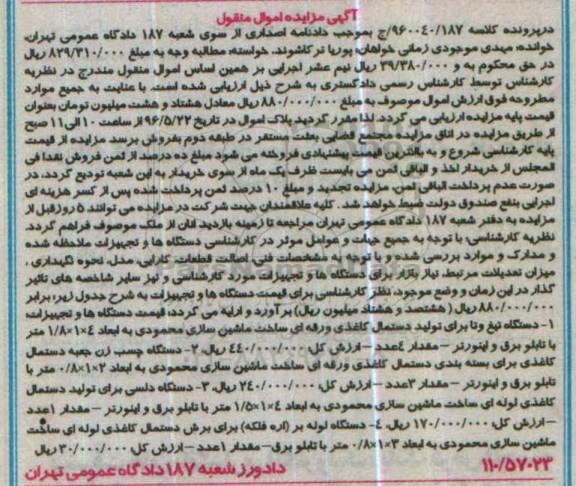 آگهی مزایده اموال منقول
درپرونده کلاسه ۹۶۰۰۴۰/۱۸۷/ج بموجب دادنامه اصداری از سوی شعبه ۱۸۷ دادگاه عمومی تهران،
خوانده: مهدی موجودی زمانی خواهان: پوریا ترکاشوند، خواسته: مطالبه وجه به مبلغ ۸۲۹/۳۱۰/۰۰۰ ریال
در حق محکوم به و ۳۹/۳۸۰/۰۰۰ ریال نیم عشر اجرایی بر همین اساس اموال منقول مندرج در نظریه
کارشناس توسط کارشناس رسمی دادگستری به شرح ذیل ارزیابی شده است. با عنایت به جمیع موارد
مطروحه فوق ارزش اموال موصوف به مبلغ ۸۸۰/۰۰۰/۰۰۰ ریال معادل هشتاد و هشت میلیون تومان بعنوان
قیمت پایه مزایده ارزیابی می گردد. لذا مقرر گردید پلاک اموال در تاریخ ۹۶/۵/۲۲ از ساعت ۱۰ الی ۱۱ صبح
از طریق مزایده در اتاق مزایده مجتمع قضایی بعثت مستقر در طبقه دوم بفروش برسد. مزایده از قیمت
پایه کارشناسی شروع و به بالاترین قیمت پیشنهادی فروخته می شود مبلغ ده درصد از ثمن فروش نقدا فی
المجلس از خریدار اخذ و الباقی ثمن می بایست ظرف یک ماه از سوی خریدار به این شعبه تودیع گردد، در
صورت عدم پرداخت الباقی ثمن، مزایده تجدید و مبلغ ۱۰ درصد ثمن پرداخت شده پس از کسر هزینه ای
اجرایی بنفع صندوق دولت ضبط خواهد شد. کلیه علاقمندان جهت شرکت در مزایده می توانند ۵ روز قبل از
مزایده به دفتر شعبه ۱۸۷ دادگاه عمومی تهران مراجعه تا زمینه بازدید آنان از ملک موصوف فراهم گردد.
نظریه کارشناسی: با توجه به جمیع جهات و عوامل موثر در کارشناسی دستگاه ها و تجهیزات ملاحظه شده
و مدارک و موارد بررسی شده و با توجه به مشخصات فنی، اصالت قطعات، کارایی، مدل، نحوه نگهداری،
میزان تعدیلات مرتبط، نیاز بازار، برای دستگاه ها و تجهیزات مورد کارشناسی و نیز سایر شاخصه های تاثیر
گذار در این زمان و وضع موجود، نظر کارشناسی برای قیمت دستگاه ها و تجهیزات به شرح جدول زیر، برابر
۸۸۰/۰۰۰/۰۰۰ ریال (هشتصد و هشتاد میلیون ریال) برآورد و ارایه می گردد، قیمت دستگاه ها و تجهیزات:
۱- دستگاه تیغ وتا برای تولید دستمال کاغذی ورقه ای ساخت ماشین سازی محمودی به ابعاد ۴×۱×۱/۸ متر
با تابلو برق و اینورتر – مقدار ۴عدد – ارزش کل: ۴۴۰/۰۰۰/۰۰۰ ریال، ۲- دستگاه چسب زن جعبه دستمال
کاغذی برای بسته بندی دستمال کاغذی ورقه ای ساخت ماشین سازی محمودی به ابعاد ۲×۱×۰/۸ متر با
تابلو برق و اینورتر – مقدار ۳عدد – ارزش کل: ۲۴۰/۰۰۰/۰۰۰ ریال، ۳- دستگاه دلسی برای تولید دستمال
کاغذی لوله ای ساخت ماشین سازی محمودی به ابعاد ۴×۱×۱/۵ متر با تابلو برق و اینورتر – مقدار ۱عدد
– ارزش کل: ۱۷۰/۰۰۰/۰۰۰ ریال، ۴- دستگاه لوله بر (اره فلکه) برای برش دستمال کاغذی لوله ای ساخت
ماشین سازی محمودی به ابعاد ۳×۱×۰/۸ متر با تابلو برق – مقدار ۱عدد – ارزش کل: ۳۰/۰۰۰/۰۰۰ ریال
۱۱۰/۵۷۰۲۳ دادورز شعبه ۱۸۷ دادگاه عمومی تهران